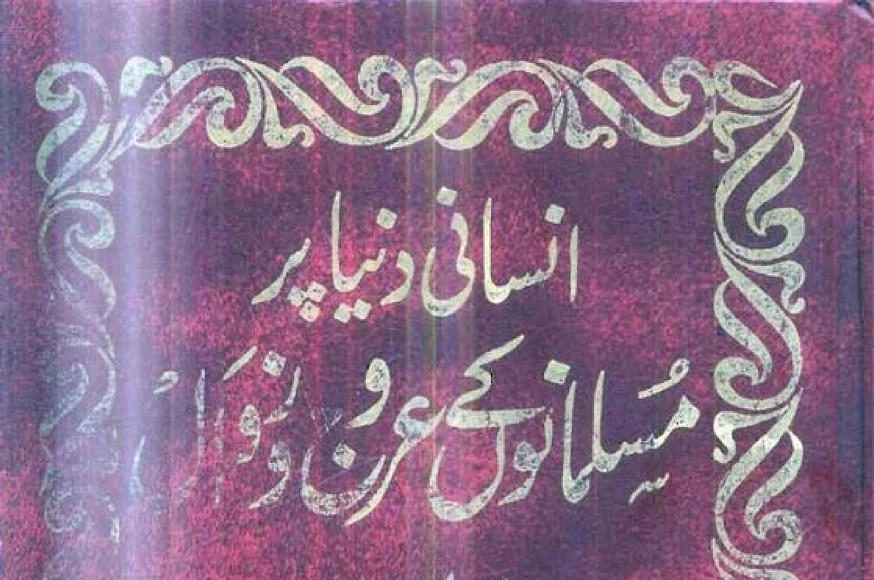 انسانی دنیا پر
مُسلمانوں کے عروج و زوَال